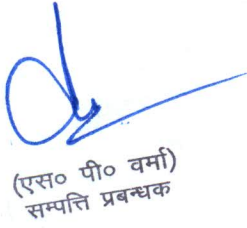 (एस० पी० वर्मा)
सम्पत्ति प्रबन्धक